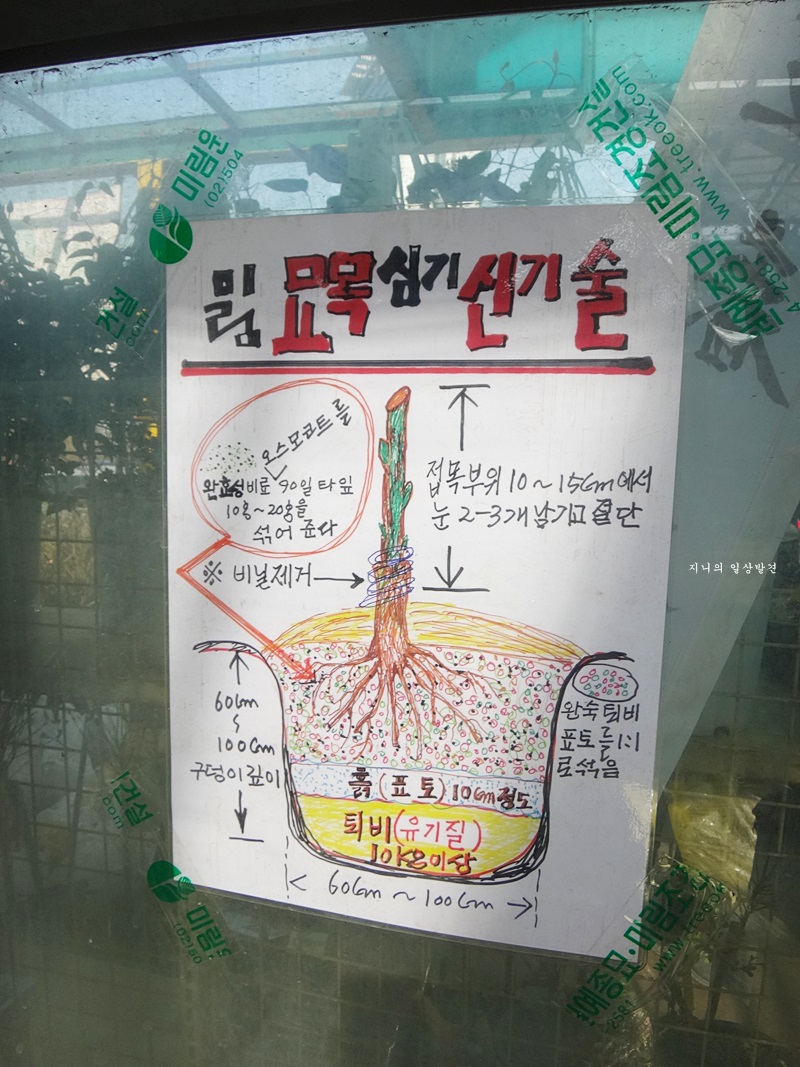 밂 묘목 심기 신기술
오스모코트를
완효성비료 90일 타잎
10알~20알을
섞어 준다
접목부위 10~15Cm에서
눈 2-3개 남기고 절단
※ 비닐제거
60Cm
~
100Cm
구덩이 깊이
완숙퇴비
표토를 1:1
로 섞음
흙(표토) 10Cm정도
퇴비(유기질)
이상
60Cm ~ 100Cm
지니의 일상발견
미림원
(02)504
건설
com
www.treeok.com
예종묘·미림조경건설
2581
건설
com
미림
예종묘·미림조경
www.treeok
2581